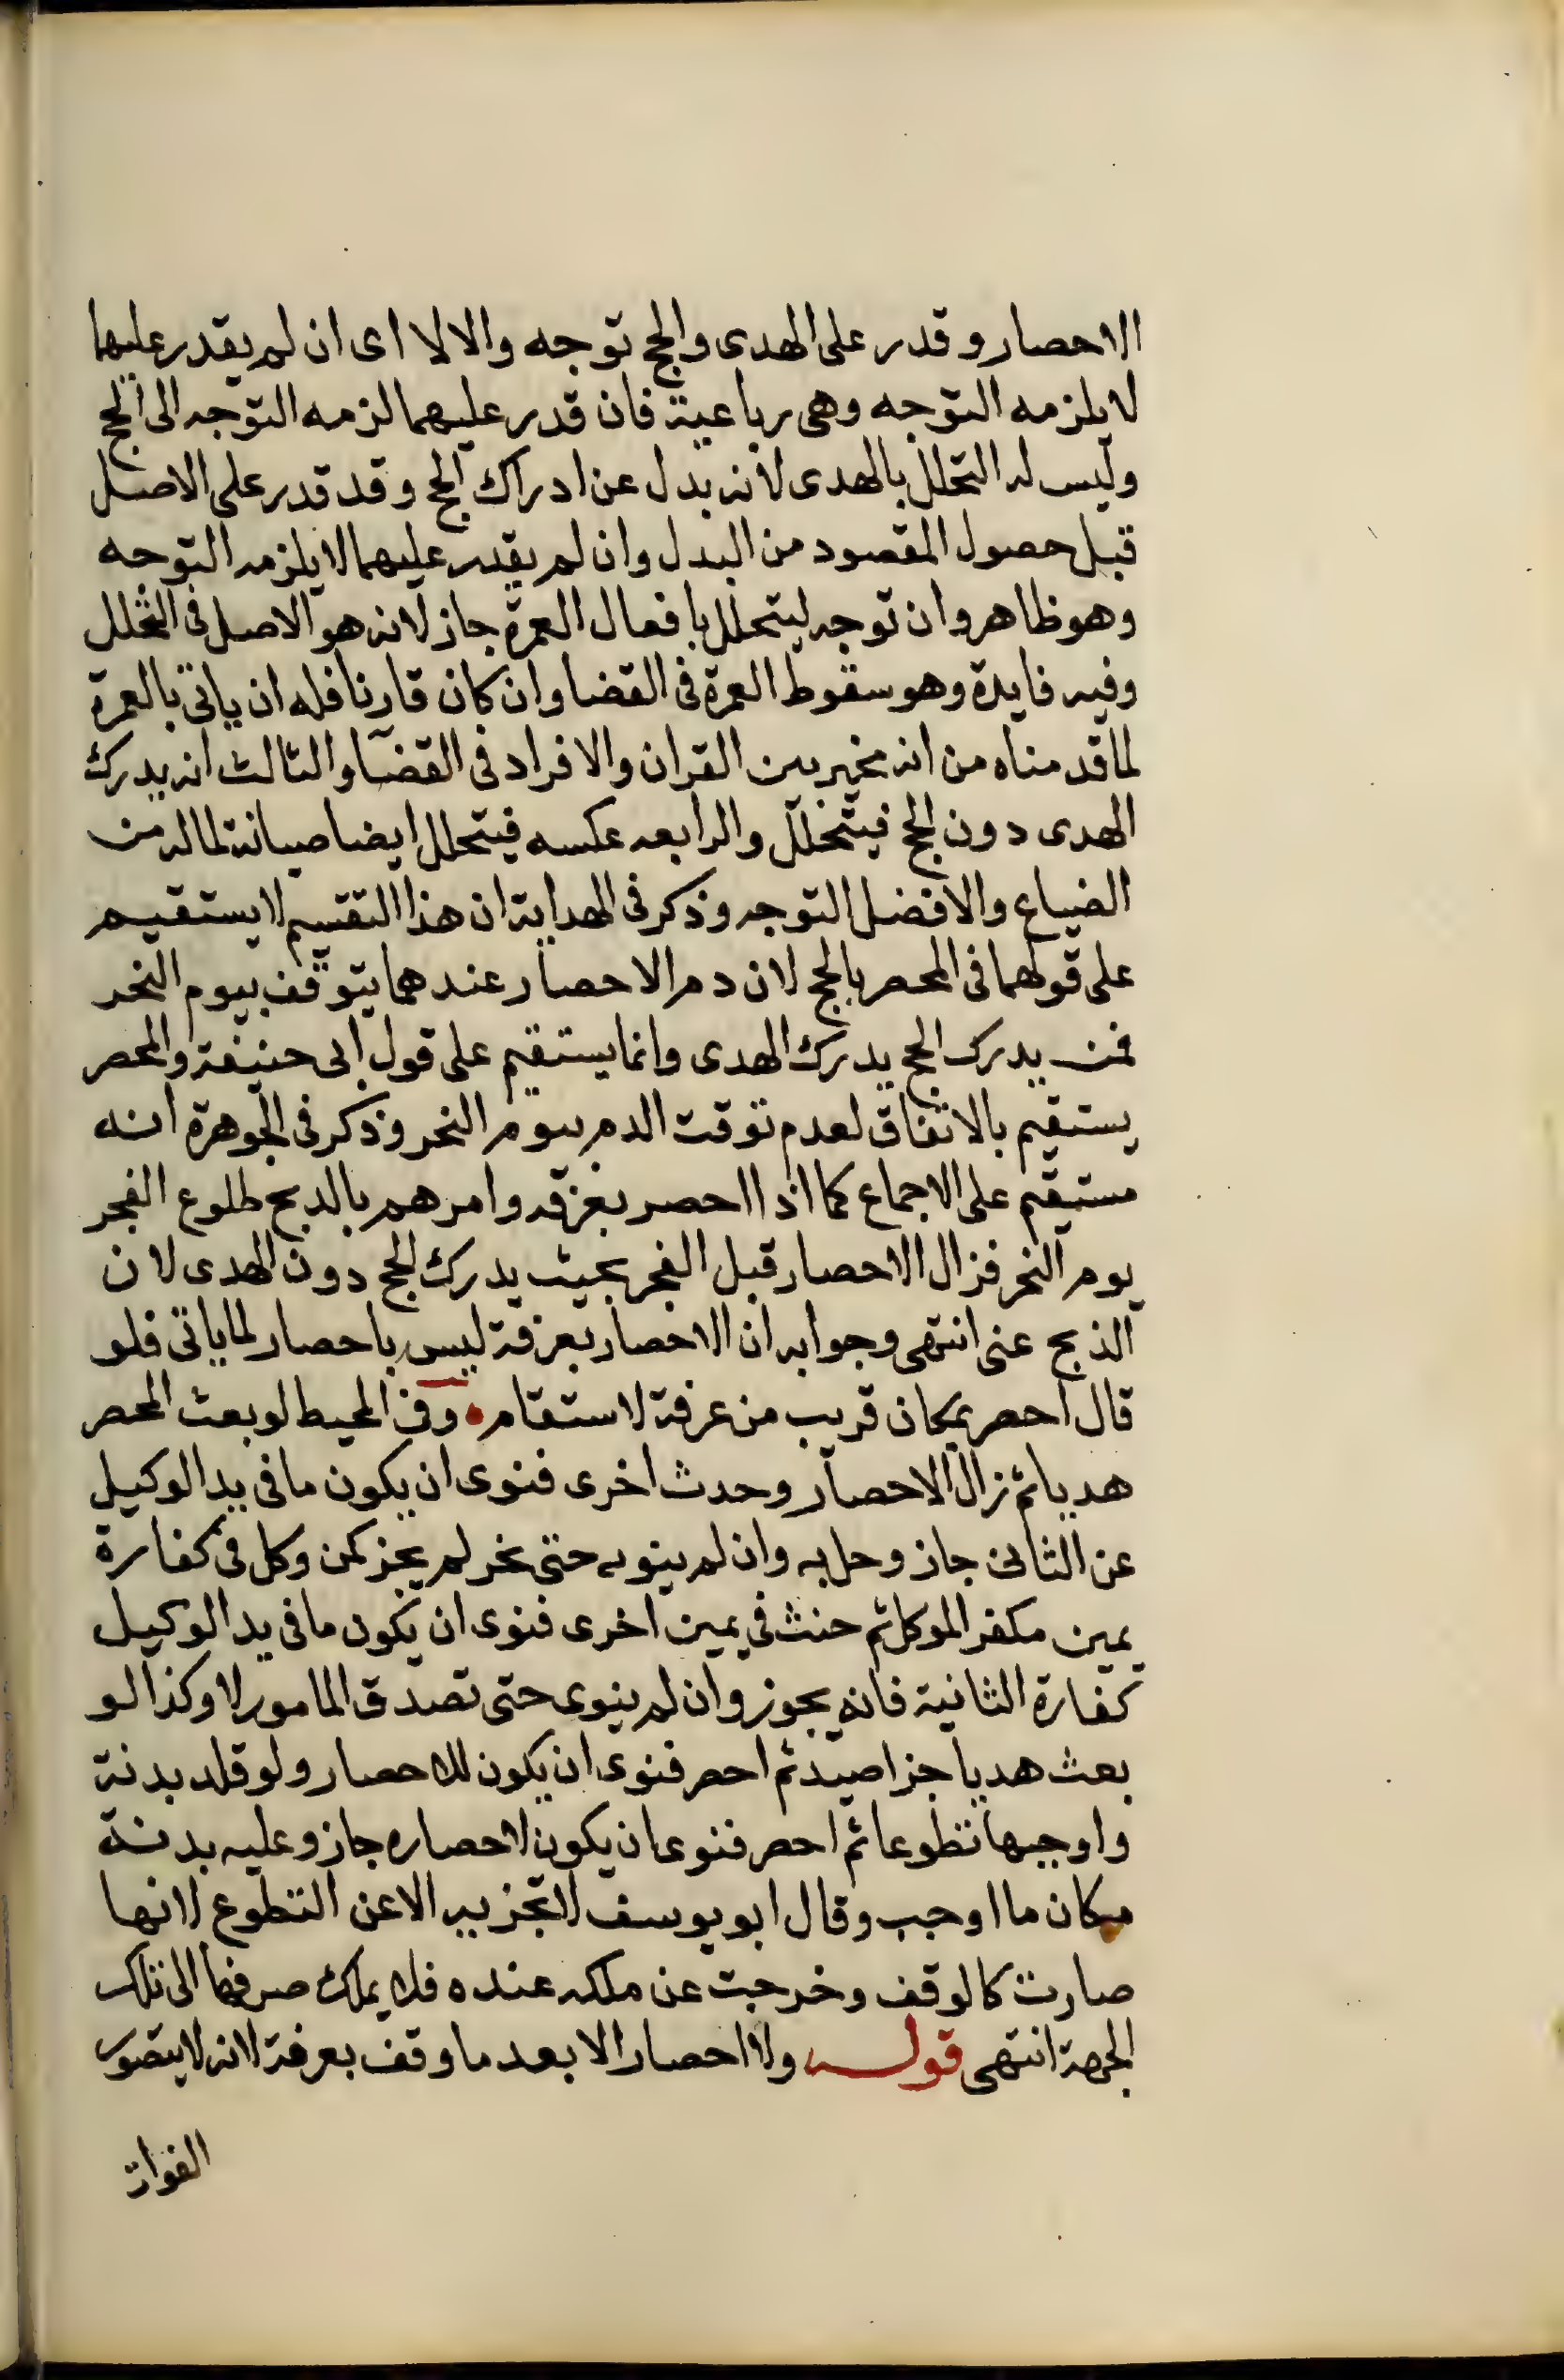 الاحصار وقدر على الهدى والحج توجه والا لا اى ان لم يقدر عليهما
لا يلزمه التوجه وهى رباعية فان قدر عليهما لزمه التوجه الى الحج
وليس له التحلل بالهدى لانه بدل عن ادراك الحج وقد قدر على الاصل
قبل حصول المقصود من البدل وان لم يقدر عليهما لا يلزمه التوجه
وهو ظاهر وان توجه ليتحلل بافعال العمرة جاز لانه هو الاصل فى التحلل
وفيه فايدة وهو سقوط العمرة فى القضا وان كان قارنا فله ان ياتى بالعمرة
لما قدمناه من انه مخير بين القران والافراد فى القضا والثالث انه يدرك
الهدى دون الحج فيتحلل والرابعه عكسه فيتحلل ايضا صيانة لماله من
الضياع والافضل التوجه وذكر فى الهداية ان هذا التقسيم لا يستقيم
على قولهما فى المحصر بالحج لان دم الاحصار عندهما يتوقف بيوم النحر
فمن يدرك الحج يدرك الهدى وانما يستقيم على قول ابى حنيفة والمحصر
يستقيم بالاتفاق لعدم توقت الدم بيوم النحر وذكر فى الجوهرة انه
مستقيم على الاجماع كما اذا احصر بعرفه وامرهم بالذبح طلوع الفجر
يوم النحر فزال الاحصار قبل الفجر بحيث يدرك الحج دون الهدى لان
الذبح عنى انتهى وجوابه ان الاحصار بعرفة ليس باحصار لما ياتى فلو
قال احصر بمكان قريب من عرفة لاستقام وفى المحيط لو بعث المحصر
هديا ثم زال الاحصار وحدث اخرى فنوى ان يكون ما فى يد الوكيل
عن الثانى جاز وحل به وان لم ينوى حتى نحر لم يجز كمن وكل فى كفارة
يمين مكفر الموكل ثم حنث فى يمين اخرى فنوى ان يكون ما فى يد الوكيل
كفارة الثانية فانه يجوز وان لم ينوى حتى تصدق المامور لا وكذا لو
بعث هديا جزا صيد ثم احصر فنوى ان يكون للاحصار ولو قلد بدنة
واوجبها تطوعا ثم احصر فنوى ان يكون لاحصاره جاز وعليه بدنة
مكان ما اوجب وقال ابو يوسف لا تجزيه الا عن التطوع لانها
صارت كالوقف وخرجت عن ملكه عنده فلا يملك صرفها الى تلك
الجهة انتهى قوله ولا احصار الا بعد ما وقف بعرفة لانه لا يتصور
الفوات